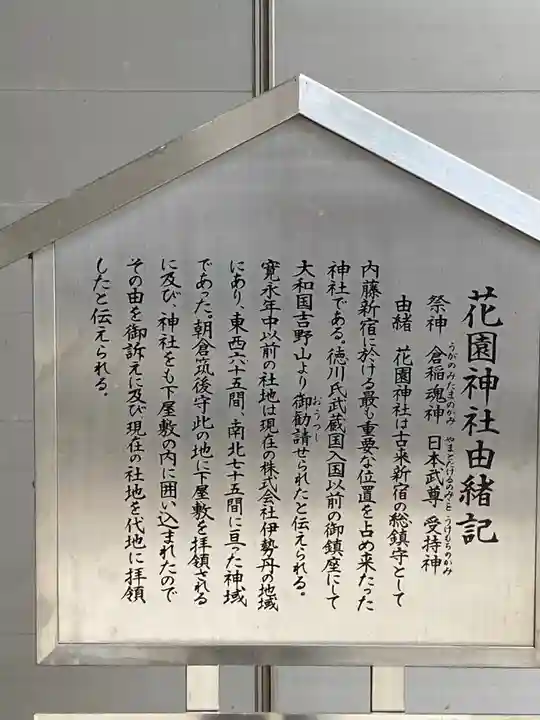 花園神社由緒記
祭神 倉稲魂神 日本武尊 受持神
うがのみたまのかみ やまとたけるのみこと うけもちのかみ
由緒 花園神社は古来新宿の総鎮守として
内藤新宿に於ける最も重要な位置を占め来たった
神社である。徳川氏武蔵国入国以前の御鎮座にして
大和国吉野山より御勧請せられたと伝えられる。
おうつし
寛永年中以前の社地は現在の株式会社伊勢丹の地域
にあり、東西六十五間、南北七十五間に亘った神域
であった。朝倉筑後守此の地に下屋敷を拝領される
に及び、神社をも下屋敷の内に囲い込まれたので
その由を御訴えに及び現在の社地を代地に拝領
したと伝えられる。